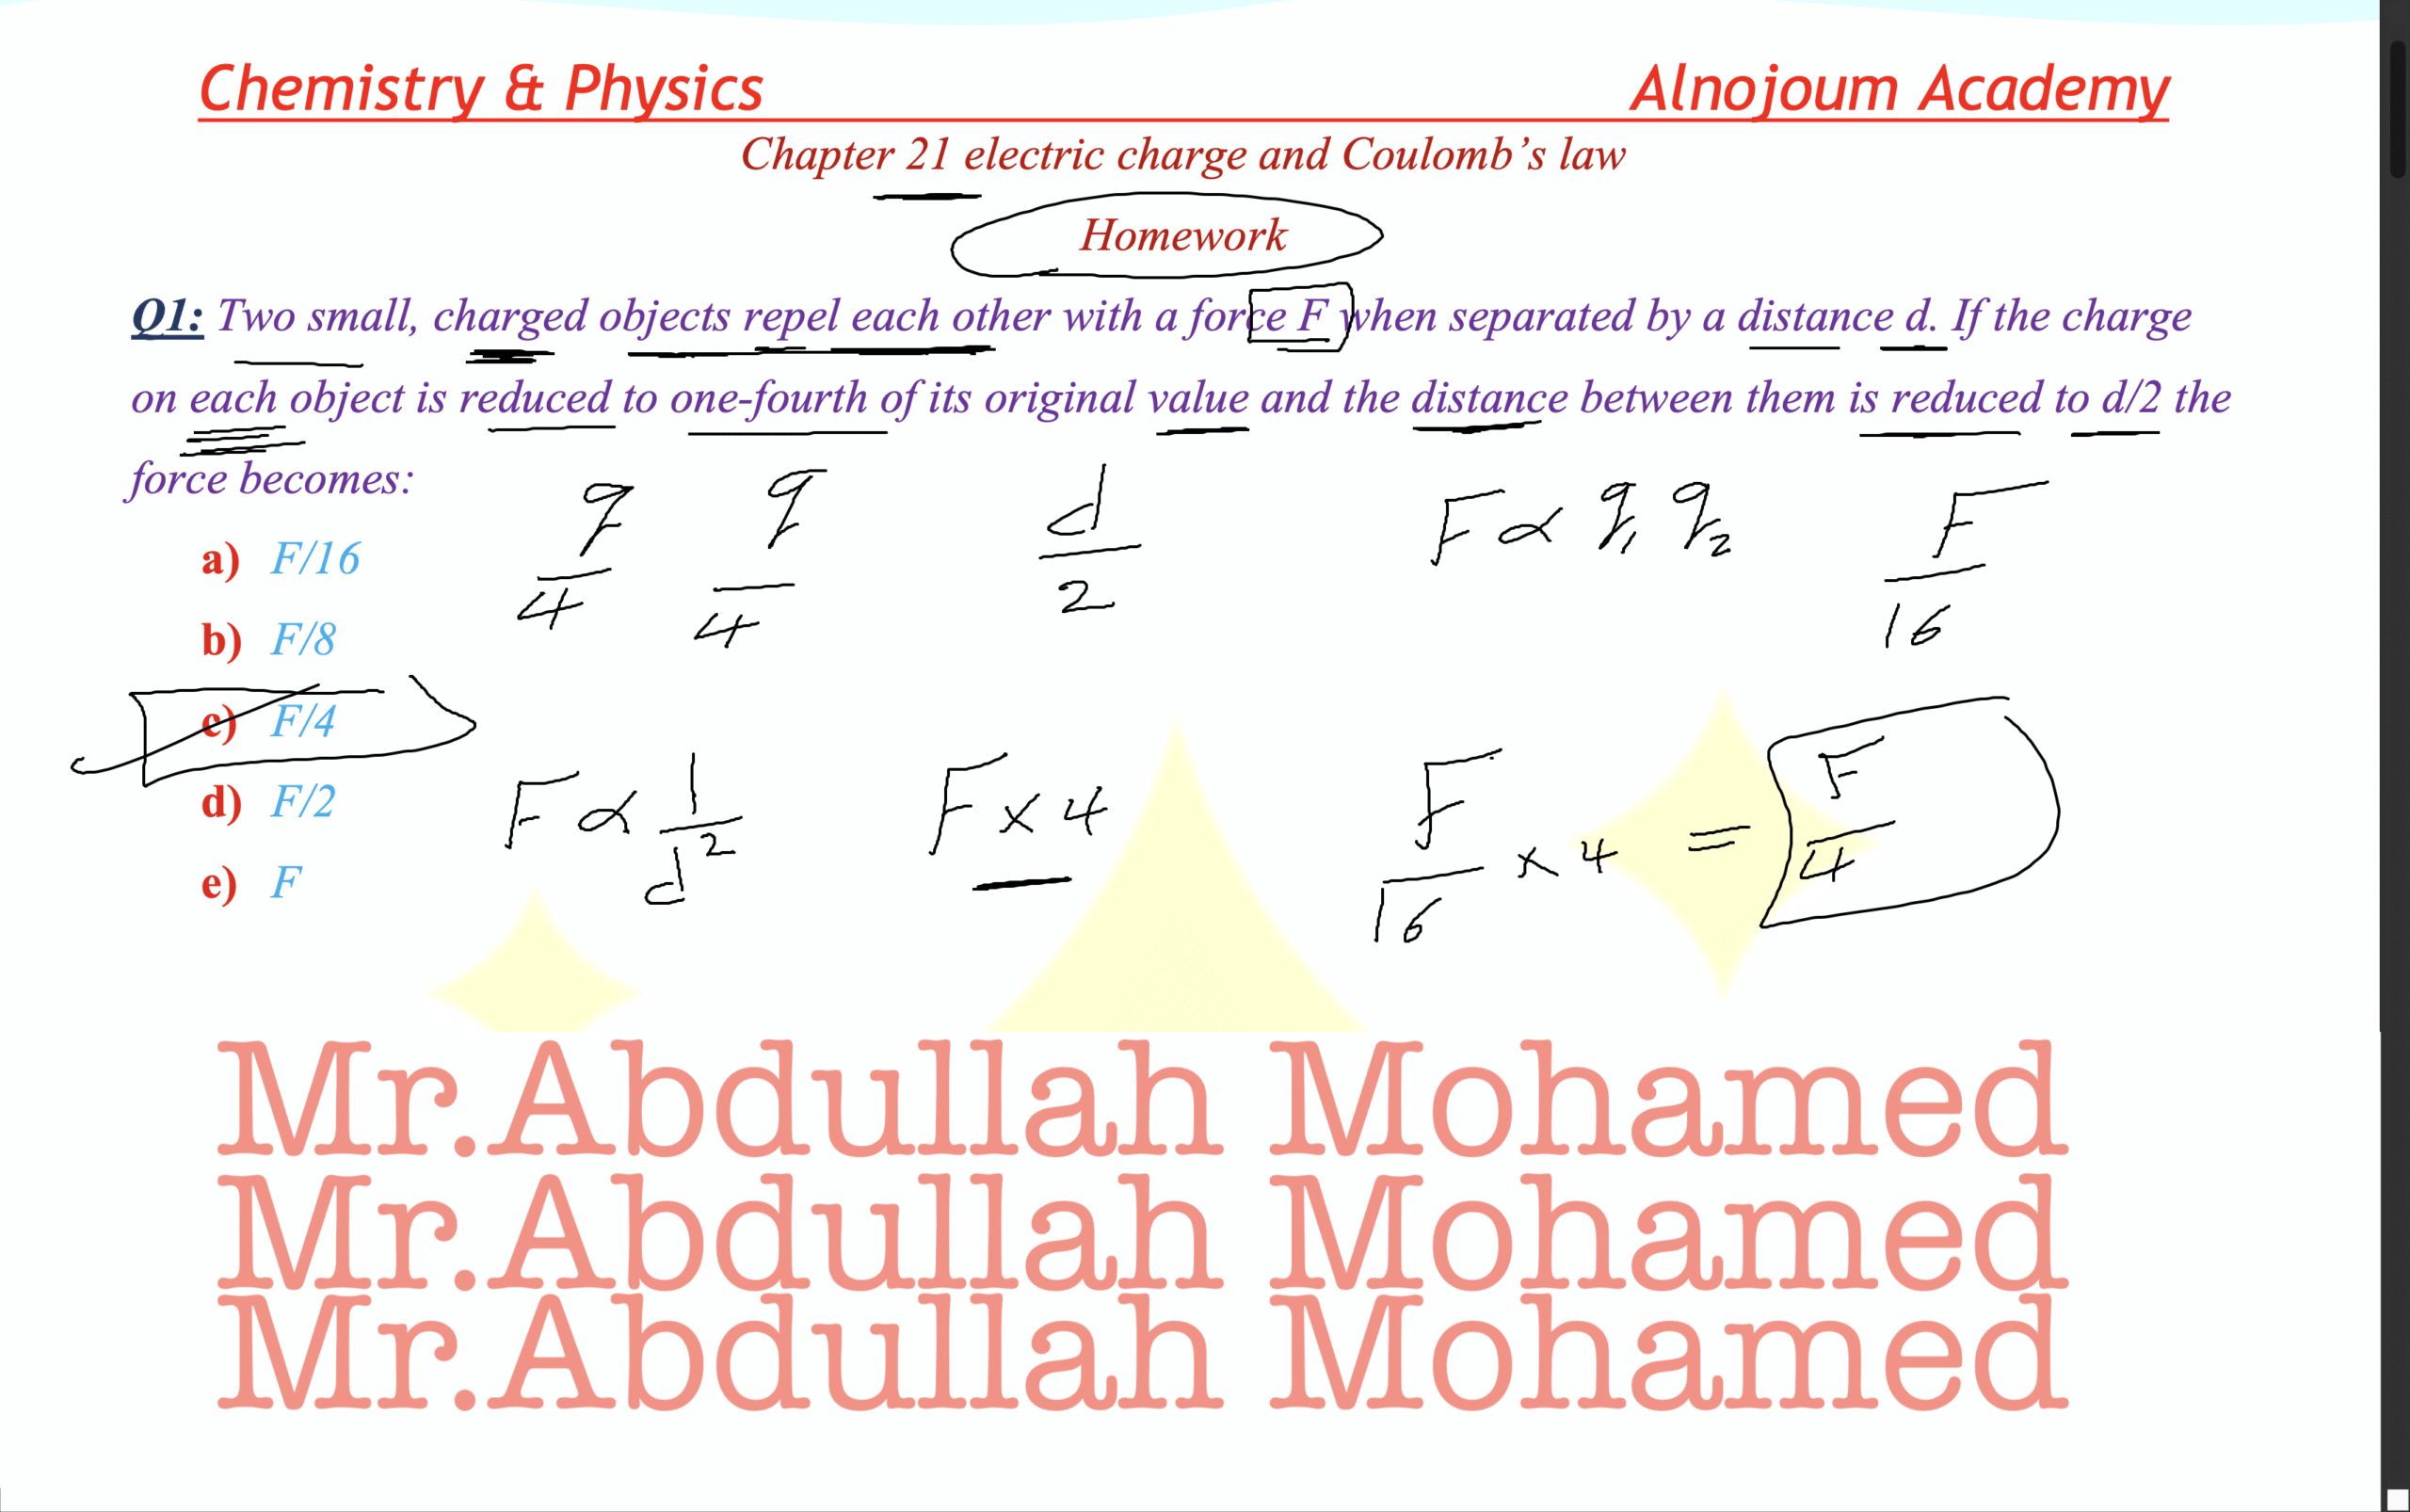 Chemistry & Physics Alnojoum Academy
Chapter 21 electric charge and Coulomb's law
Homework
Q1: Two small, charged objects repel each other with a force F when separated by a distance d. If the charge
on each object is reduced to one-fourth of its original value and the distance between them is reduced to d/2 the
force becomes:
q/4 q/4 d/2 F ∝ q₁ q₂ F/16
a) F/16
b) F/8
c) F/4
d) F/2
e) F
F ∝ 1/d² F × 4 F/16 × 4 = F/4
Mr.Abdullah Mohamed
Mr.Abdullah Mohamed
Mr.Abdullah Mohamed